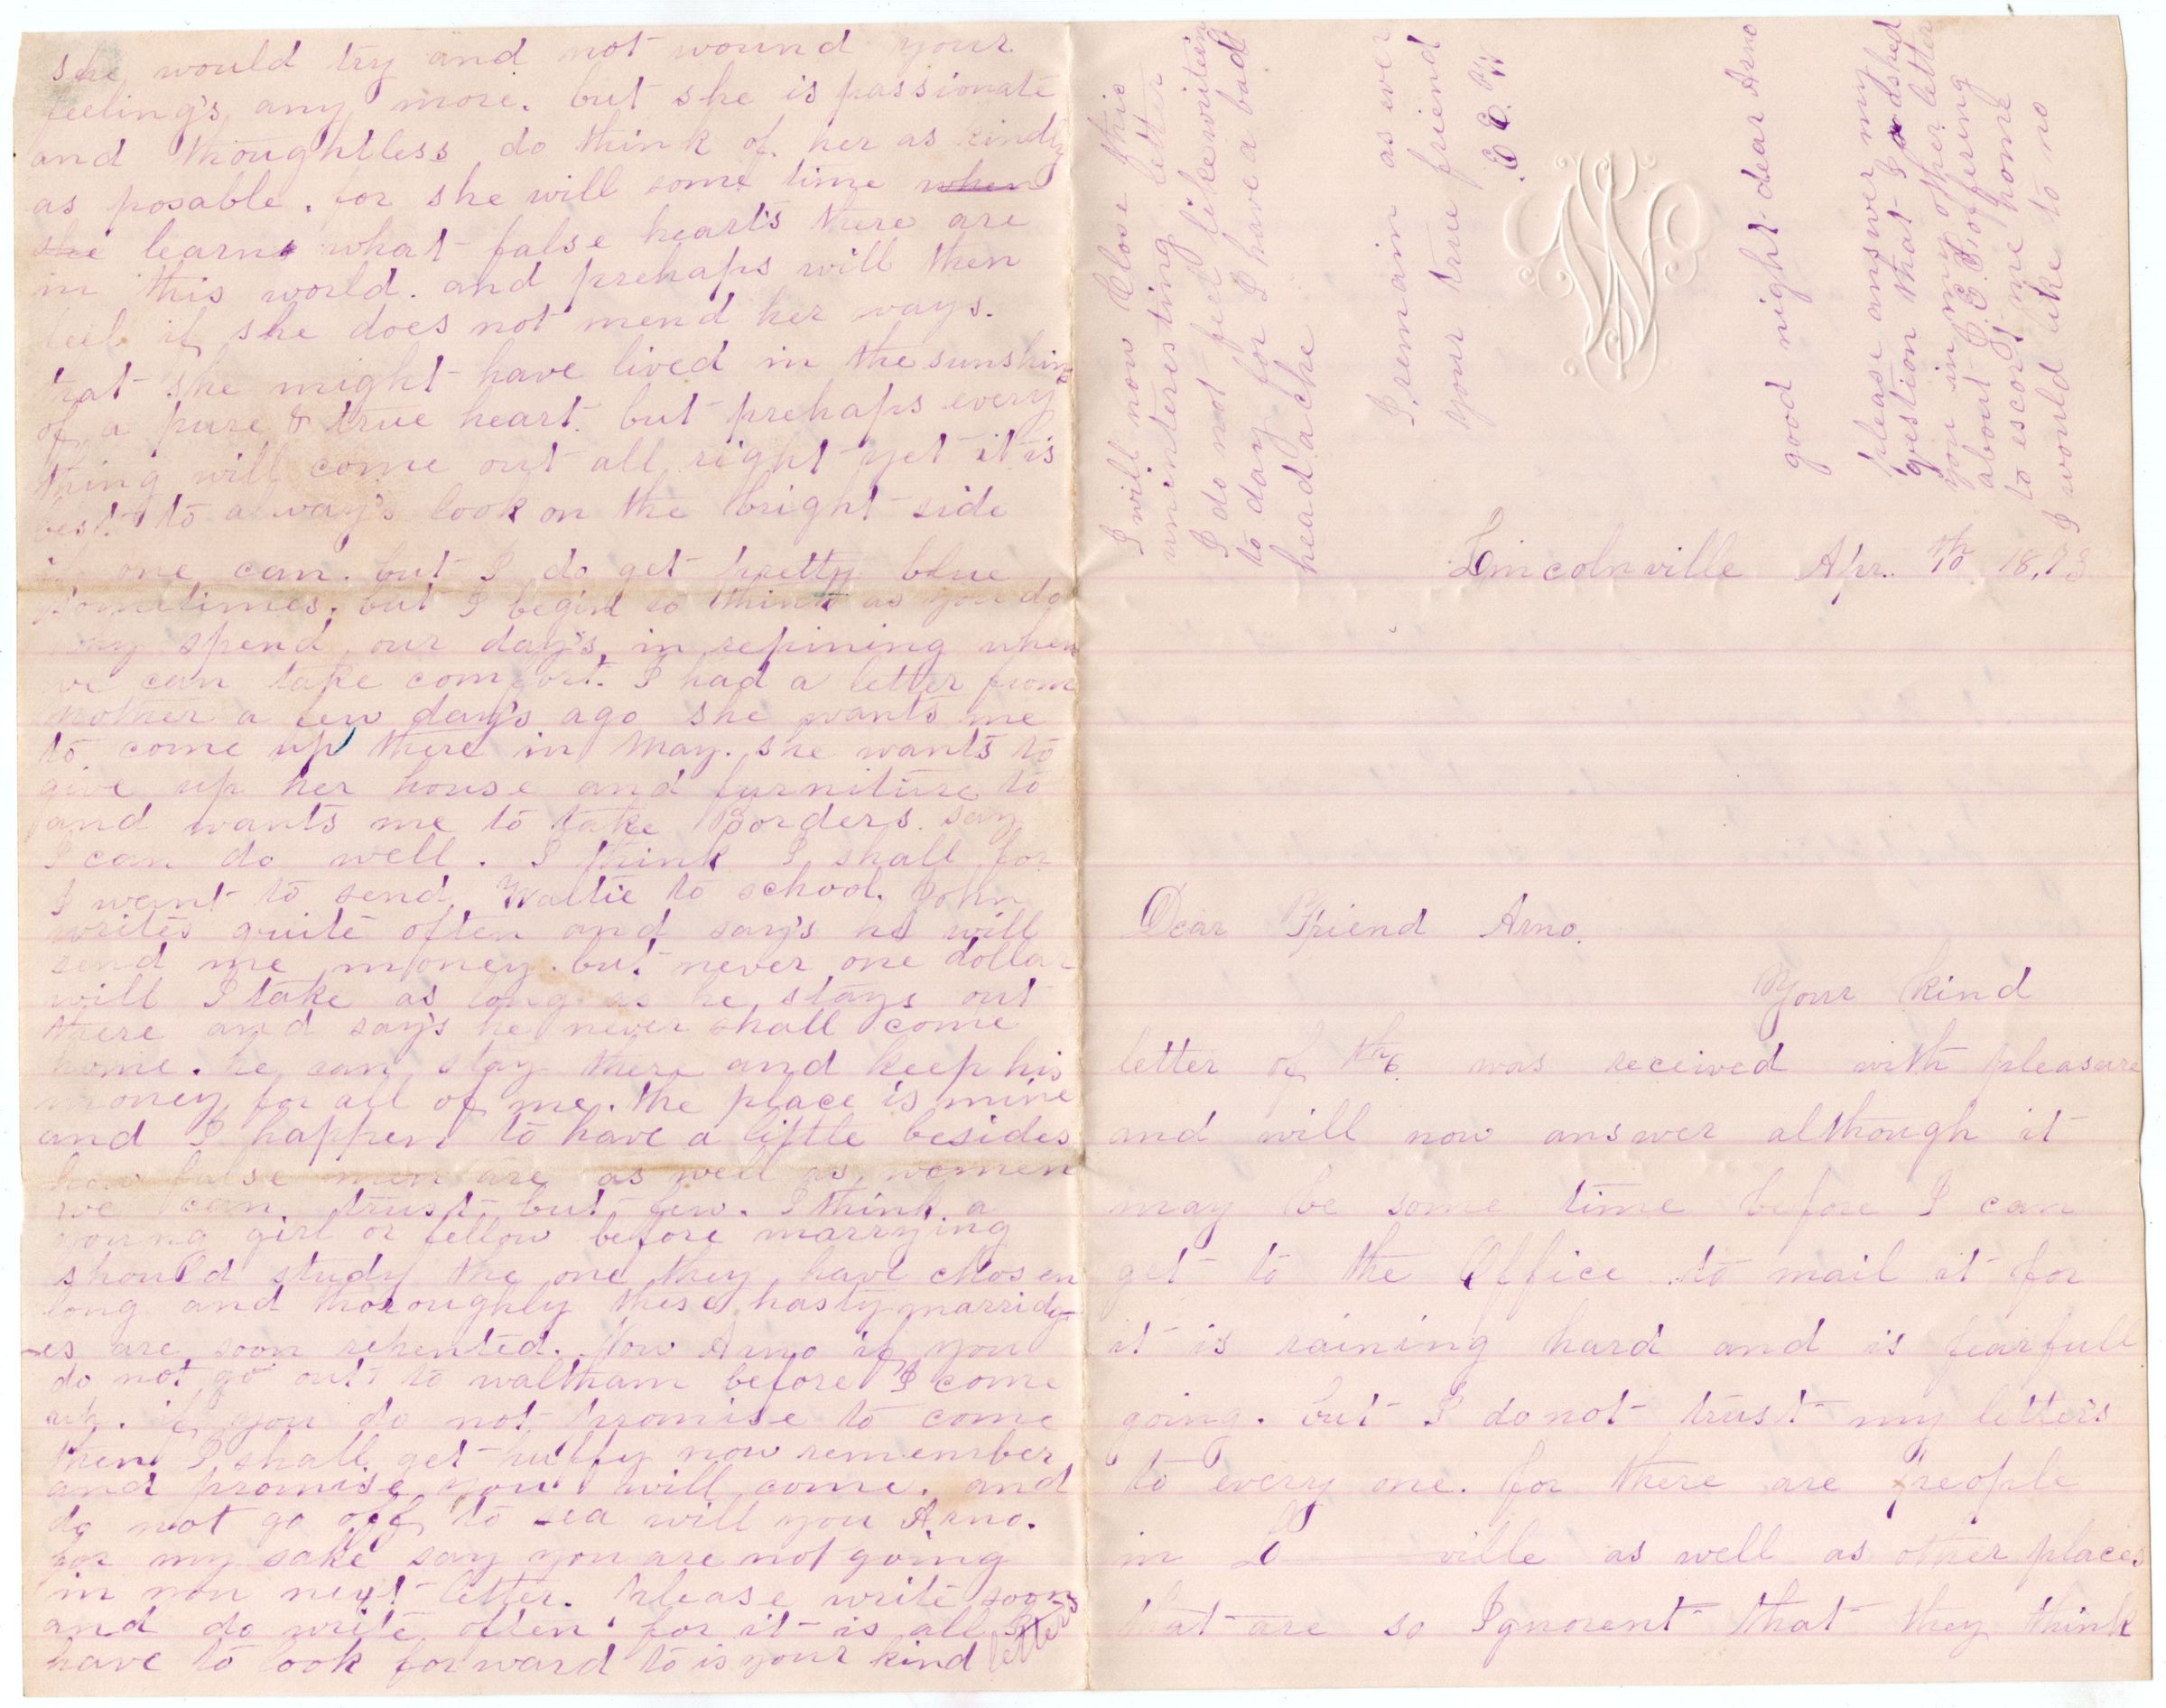 Lincolnville Apr. 10th 18,73
Dear Friend Arno.
Your kind
letter of 6th was received with pleasure
and will now answer although it
may be some time before I can
get to the Office to mail it for
it is raining hard and is fearfull
going. but I do not trust my letters
to every one. for there are people
in L ville as well as other places
that are so Ignorent that they think
she would try and not wound your
feeling's any more. but she is passionate
and thoughtless do think of her as kindly
as posable. for she will some time when
she learns what false heart's there are
in this world. and prehaps will then
feel if she does not mend her ways.
that she might have lived in the sunshine
of a pure & true heart. but prehaps every
thing will come out all right yet it is
best to alway's look on the bright side
if one can. but I do get pretty blue
sometimes. but I begin to think as you do
why spend our day's, in repining when
we can take comfort. I had a letter from
Mother a few day's ago she wants me
to come up there in May. she wants to
give up her house and furniture to
and wants me to take Borders. say
I can do well. I think I shall for
I want to send Waltie to school. John
writes quite often and say's he will
send me money. but never one dollar
will I take as long as he stays out
there and say's he never shall come
home. he can stay there and keep his
money for all of me. the place is mine
and I happen to have a little besides
how false men are as well as women
we can trust but few. I think a
young girl or fellow before marrying
should study the one they have chosen
long and thoroughly these hasty marridg-
es are soon repented. Now Arno if you
do not go out to waltham before I come
up. if you do not promise to come
then I shall get huffy now remember
and promise you will come. and
do not go off to sea will you Arno.
for my sake say you are not going
in you next letter. Please write soon
and do write often for it is all I
have to look forward to is your kind letters
I will now Close this
uninteresting letter
I do not feel like writein
to day for I have a bad
head ache
I remain as ever
your true friend
E. E. W.
good night dear Arno
please answer my
question that I asked
you in my other letter
about J. E. F. offering
to escort me home
I would like to no